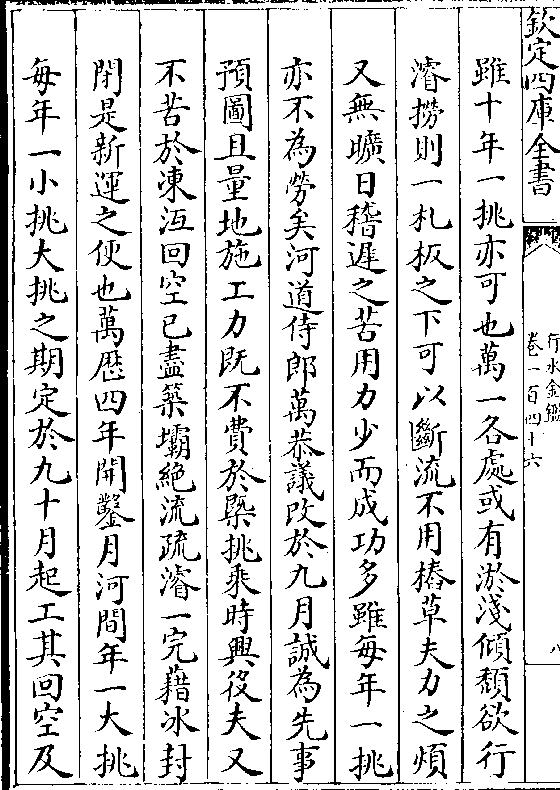 欽定四庫全書
行水金鑑
卷一百四十六
八
雖十年一挑亦可也萬一各處或有淤淺傾頹欲行
濬撈則一札板之下可以斷流不用樁草夫力之煩
又無曠日稽遲之苦用力少而成功多雖每年一挑
亦不為勞矣河道侍郎萬恭議改於九月誠為先事
預圖且量地施工力既不費於槩挑乘時興役夫又
不苦於凍沍回空已盡築壩絶流疏濬一完藉冰封
閉是新運之便也萬厯四年開鑿月河間年一大挑
每年一小挑大挑之期定於九十月起工其回空及